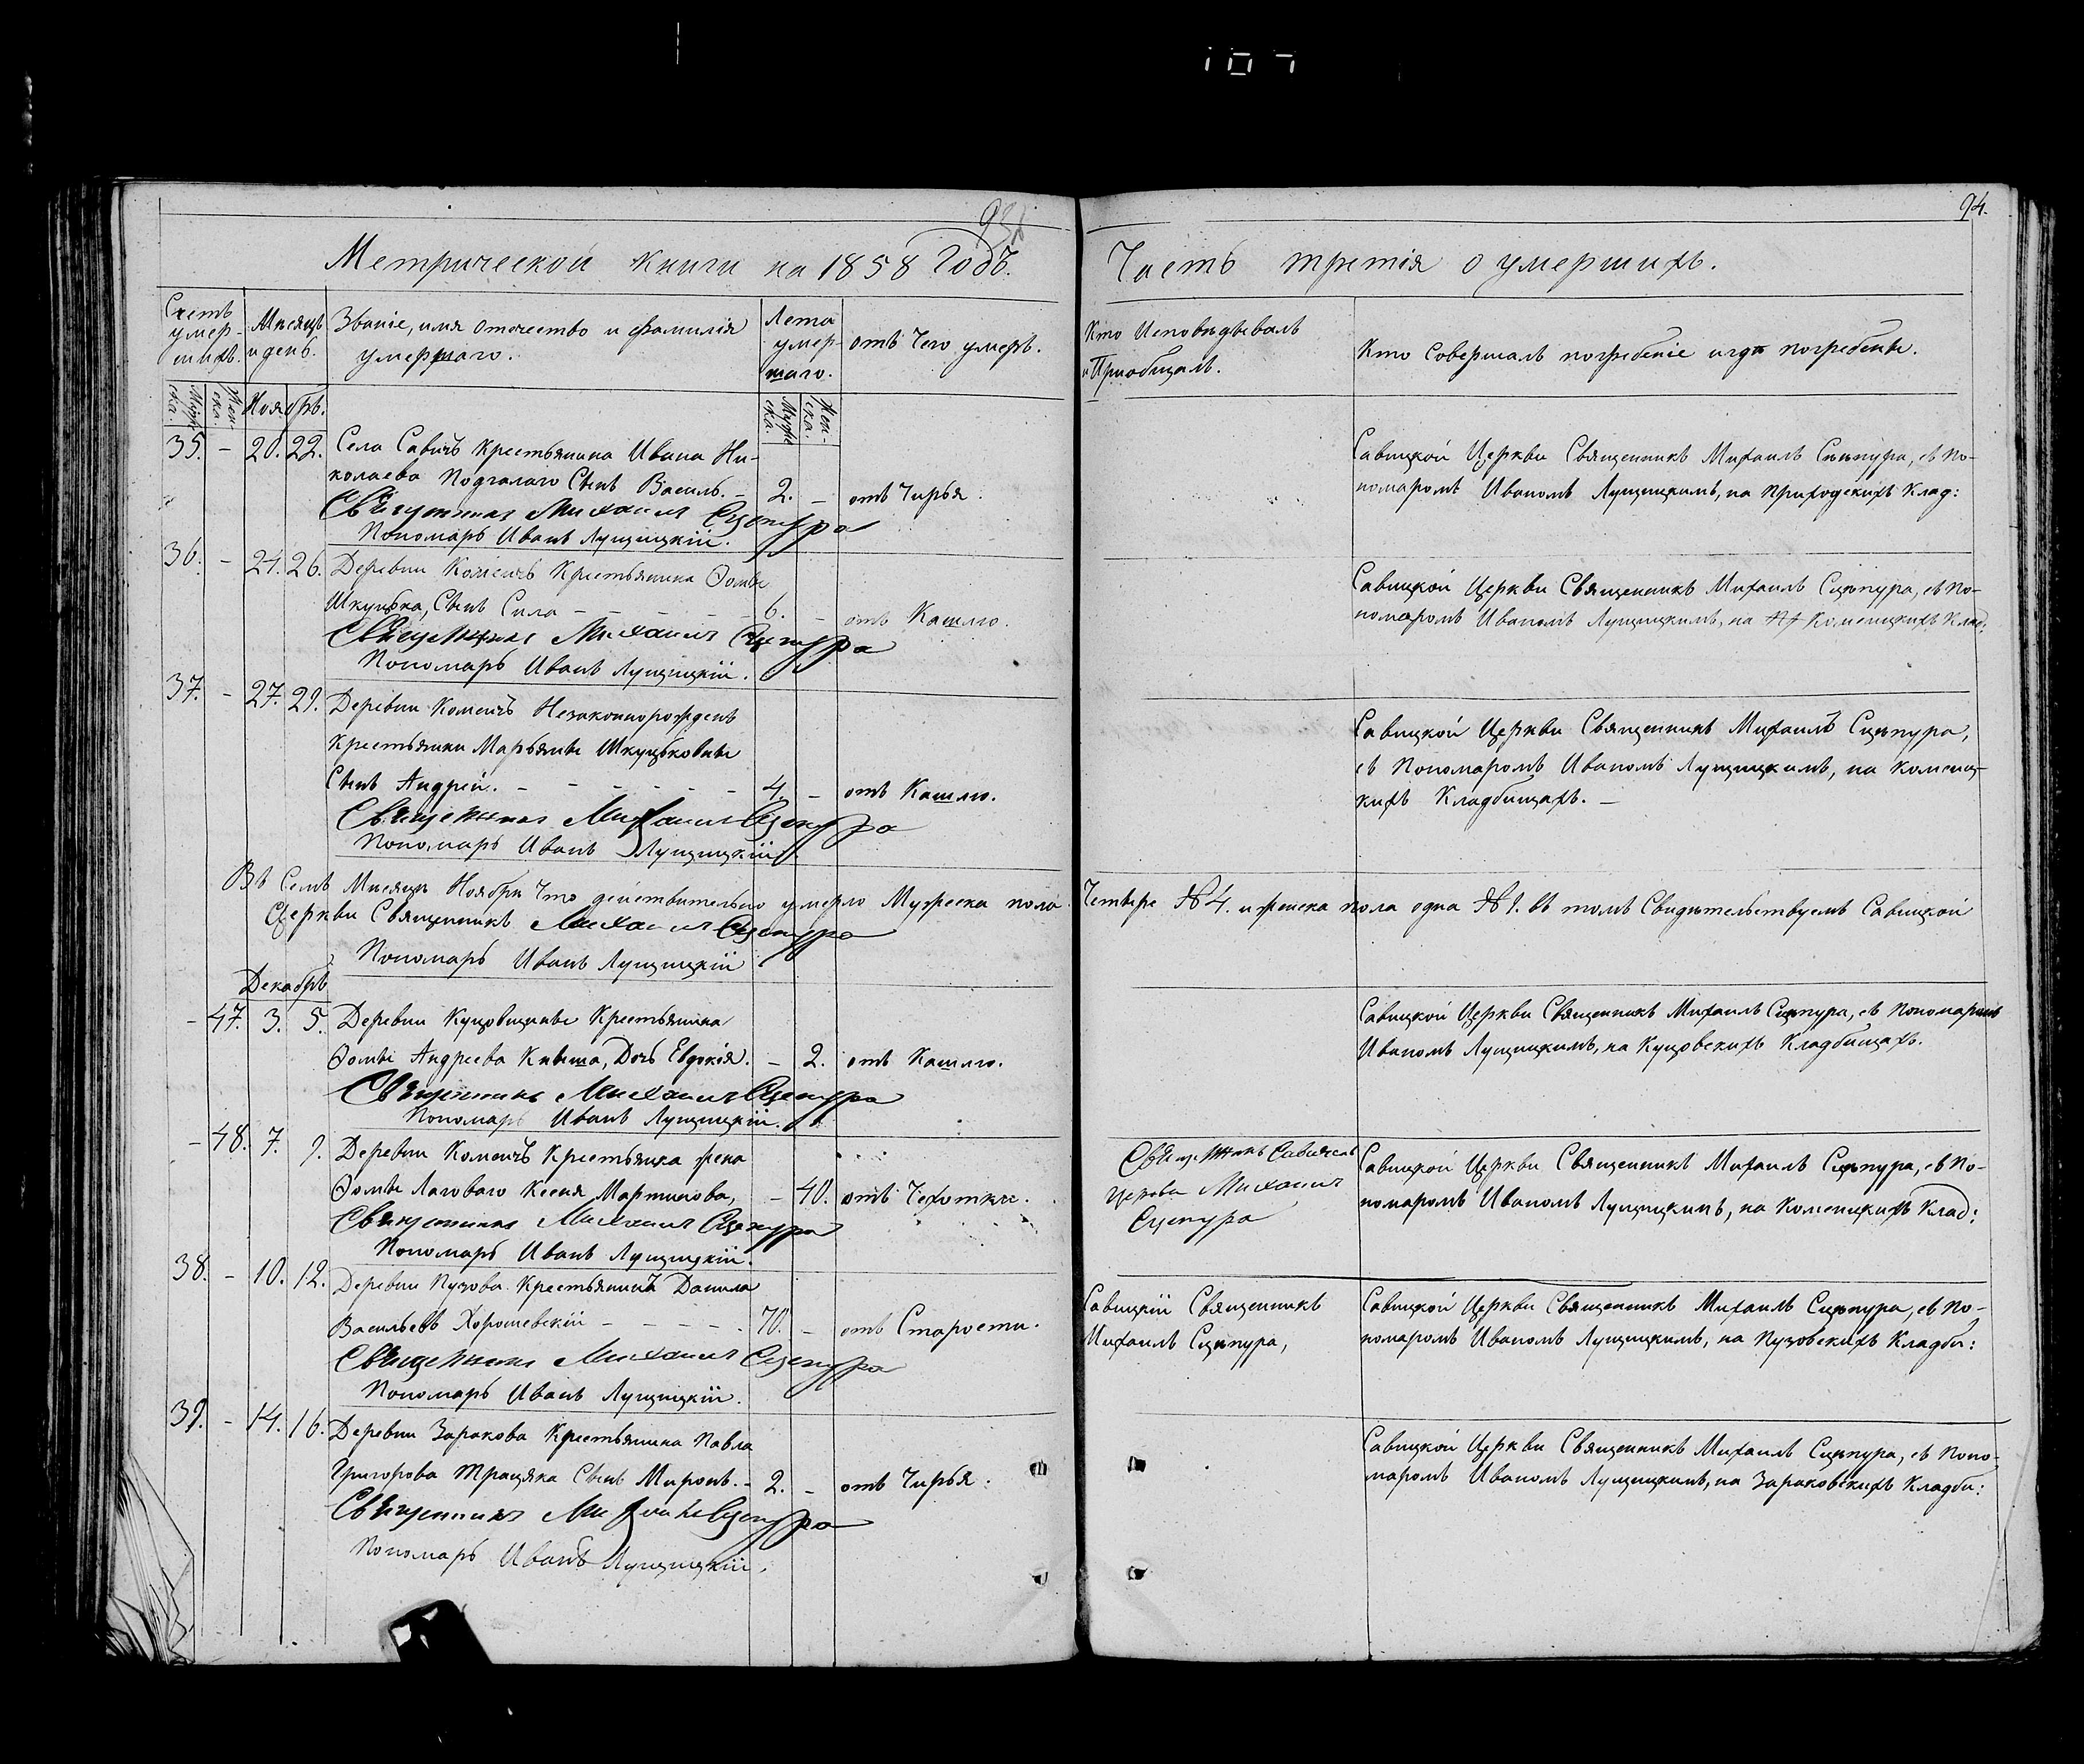 107
94.
Метрической книги на 1858 Годъ.
Часть третія о умершихъ.
Счетъ умер-шихъ.
Мѣсяцъ и день.
Званіе, имя отечество и фамилія умершаго.
Лета умер-шаго.
отъ Чего умеръ.
Кто Исповѣдывалъ и Пріобщалъ.
Кто Совершалъ погребеніе и гдѣ погребены.
Муже-ска.
Жен-ска.
Ноябрь.
Муже-ска.
Жен-ска.
35. – 20. 22. Села Савичъ Крестьянина Ивана Ни-
колаева Подгалаго Сынъ Василь. – 2. – отъ Чирья.
Священникъ Михаилъ Сцепура
Пономарь Иванъ Лущицкій.
Савицкой Церкви Священникъ Михаилъ Сцѣпура, съ По-
номаромъ Иваномъ Лущицкимъ, на Приходскихъ Клад:
36. – 24. 26. Деревни Коменъ Крестьянина Ѳомы
Шкуцька, Сынъ Сила – – – – 6. – отъ Кашлю.
Священникъ Михаилъ Сцепура
Пономарь Иванъ Лущицкій.
Савицкой Церкви Священникъ Михаилъ Сцѣпура, съ По-
номаромъ Иваномъ Лущицкимъ, на Коменицкихъ Клад:
37. – 27. 29. Деревни Коменъ Незаконнорожденъ
Крестьянки Марьяны Шкуцьковны
Сынъ Андрей. – – – – – 4. – отъ Кашлю.
Священникъ Михаилъ Сцепура
Пономарь Иванъ Лущицкій.
Савицкой Церкви Священникъ Михаилъ Сцѣпура,
съ Пономаромъ Иваномъ Лущицкимъ, на Комениц-
кихъ Кладбищахъ. –
Въ Семъ Мѣсяцѣ Ноябрѣ Что действительно умерло Мужеска пола Четыре № 4. и женска пола одна № 1. въ томъ Свидѣтельствуемъ Савицкой
Церкви Священникъ Михаилъ Сцепура
Пономарь Иванъ Лущицкій
Декабрь
– 47. 3. 5. Деревни Куцовщины Крестьянина
Ѳомы Андреева Кныша, Дочь Евдокія. – 2. отъ Кашлю.
Священникъ Михаилъ Сцепура
Пономарь Иванъ Лущицкій.
Савицкой Церкви Священникъ Михаилъ Сцѣпура, съ Пономаромъ
Иваномъ Лущицкимъ, на Куцовскихъ Кладбищахъ.
– 48. 7. 9. Деревни Коменъ Крестьянка жена
Ѳомы Лаговаго Ксенія Мартинова, – 40. отъ Чехотки.
Священникъ Михаилъ Сцепура
Пономарь Иванъ Лущицкій.
Священникъ Савицкой
Церкви Михаилъ
Сцепура
Савицкой Церкви Священникъ Михаилъ Сцѣпура, съ По-
номаромъ Иваномъ Лущицкимъ, на Коменицкихъ Клад:
38. – 10. 12. Деревни Пузова Крестьянинъ Данила
Васильевъ Хорошевскій – – – – – 70. – отъ Старости.
Священникъ Михаилъ Сцепура
Пономарь Иванъ Лущицкій.
Савицкій Священникъ
Михаилъ Сцѣпура,
Савицкой Церкви Священникъ Михаилъ Сцѣпура, съ По-
номаромъ Иваномъ Лущицкимъ, на Пузовскихъ Кладби:
39. – 14. 16. Деревни Заракова Крестьянина Павла
Григорова Трацяка Сынъ Миронъ. – 2. – отъ Чирья.
Священникъ Михаилъ Сцепура
Пономарь Иванъ Лущицкій.
Савицкой Церкви Священникъ Михаилъ Сцѣпура, съ Поно-
маромъ Иваномъ Лущицкимъ, на Зараковскихъ Кладби: